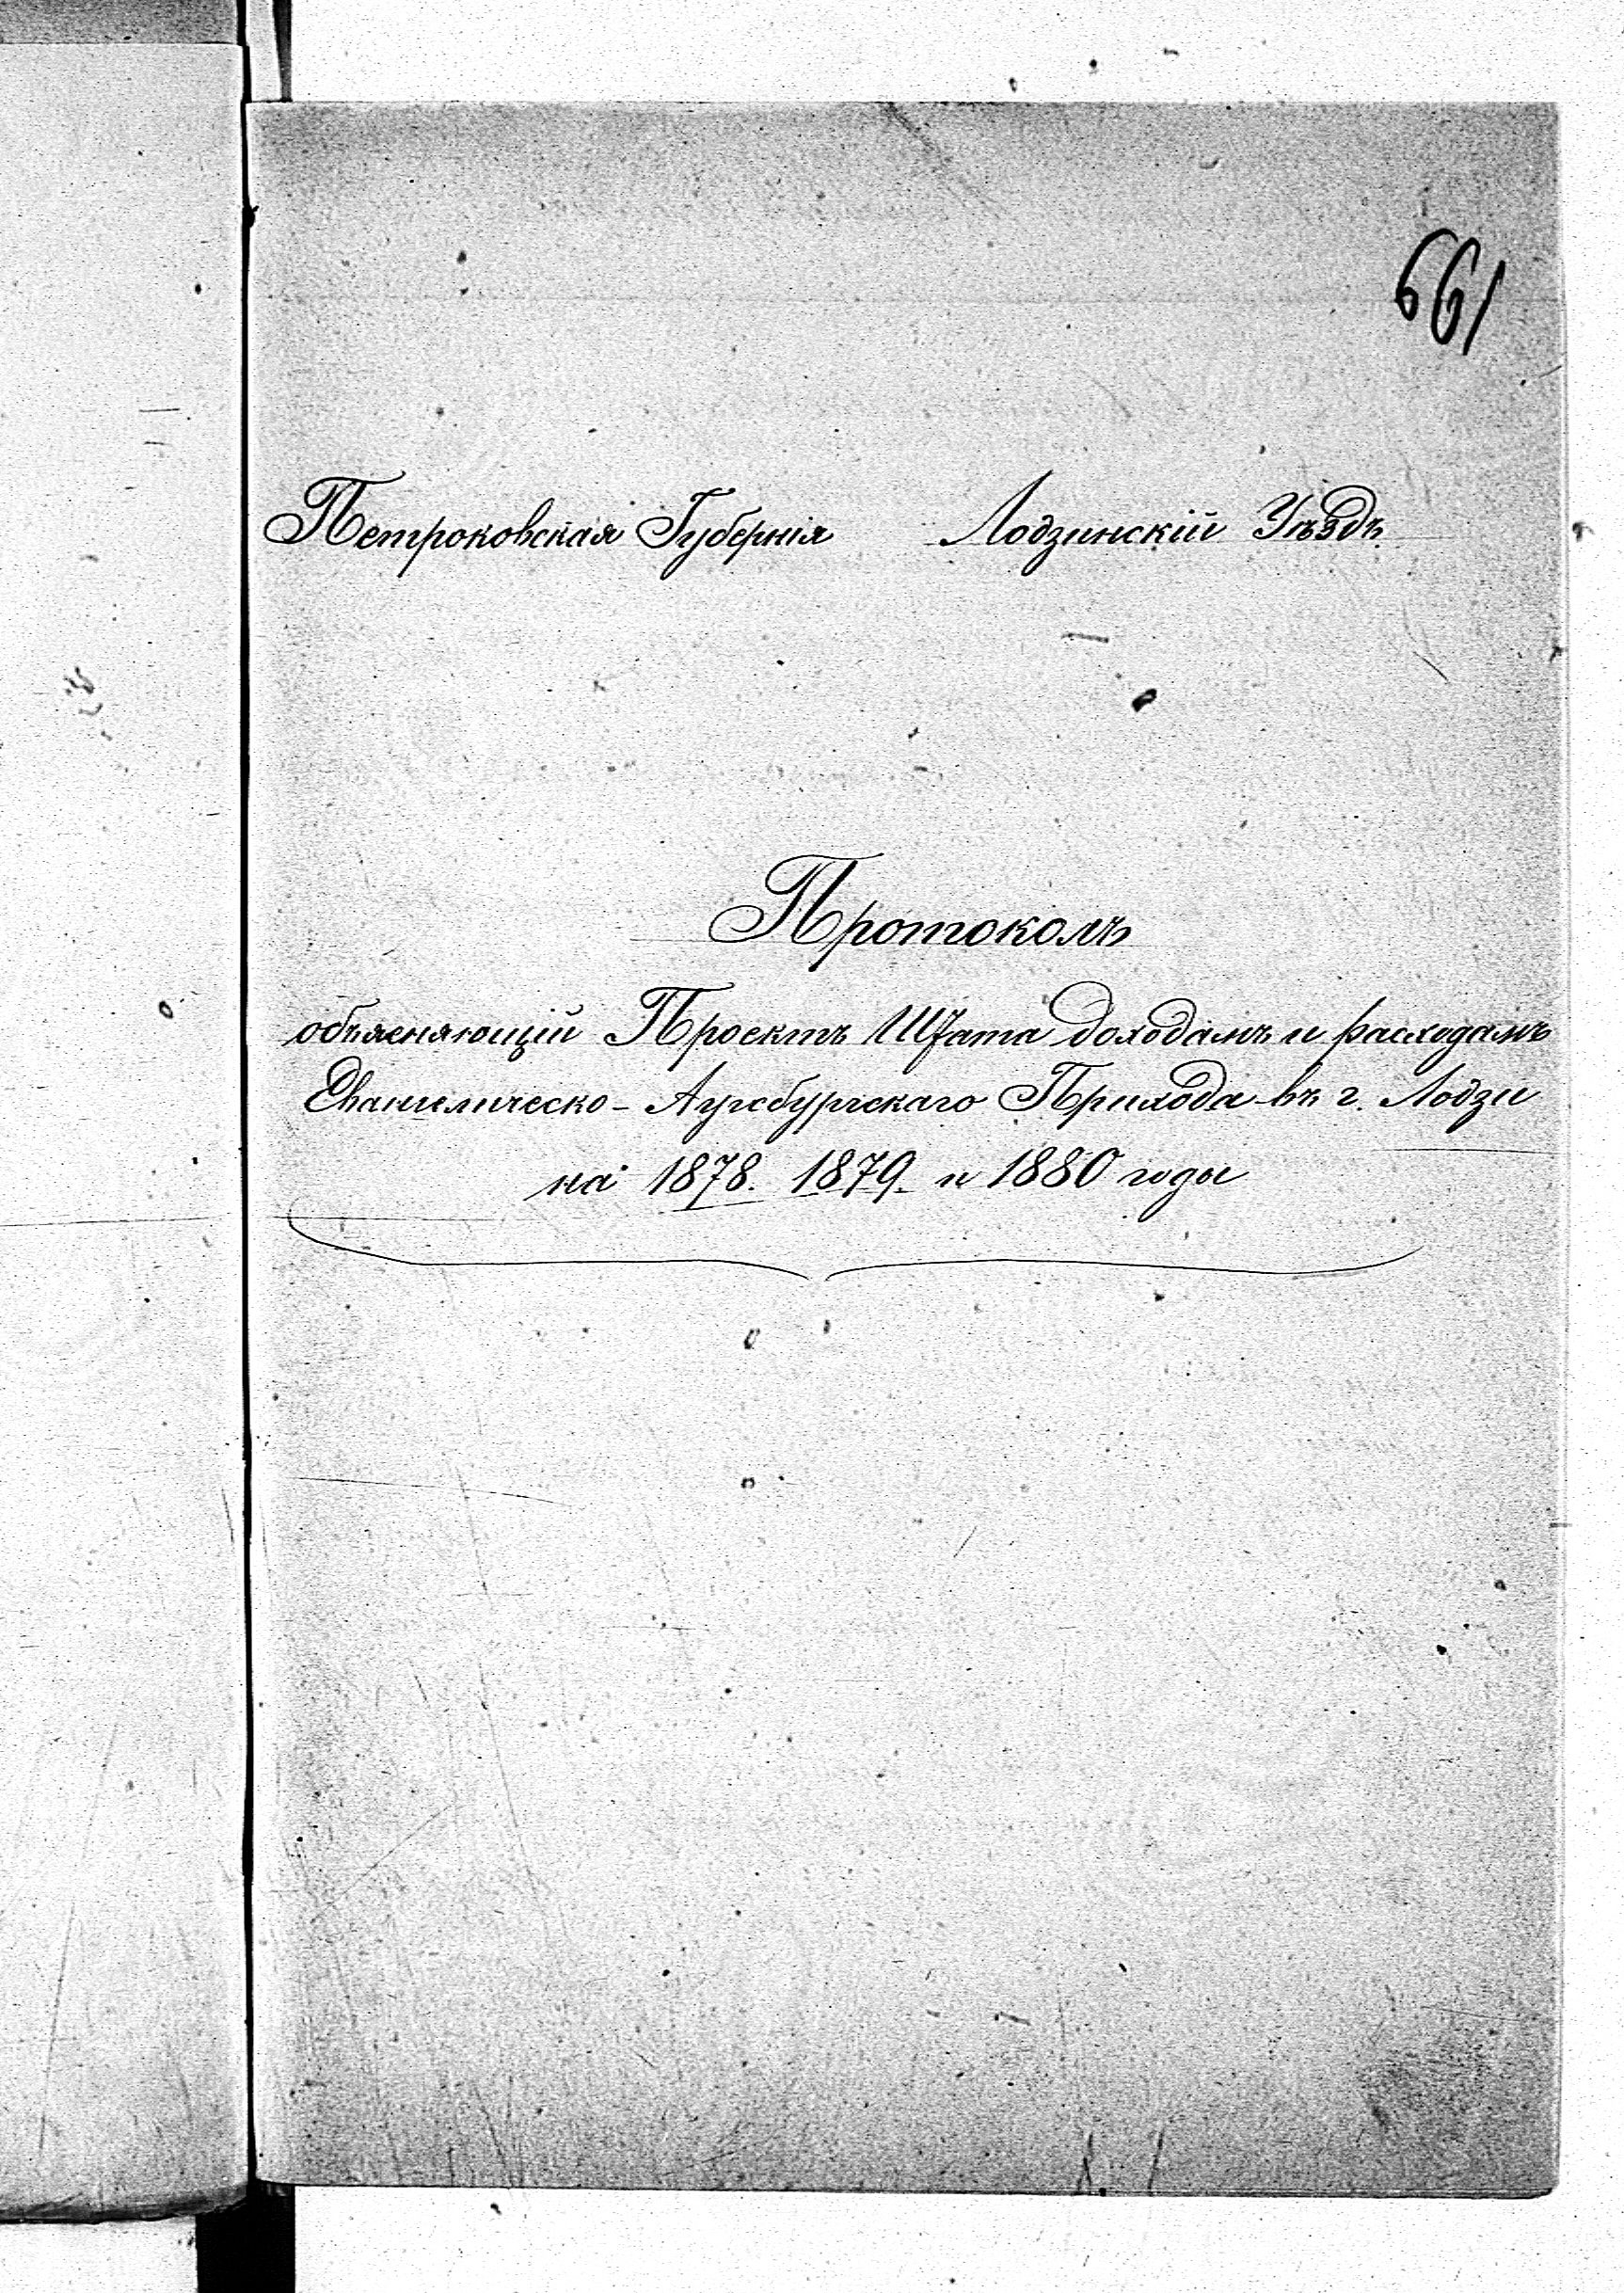 661
Петроковская Губернія Лодзинскій Уѣздъ
Протоколъ
объясняющій Проектъ Штата доходамъ и расходамъ
Евангелическо-Аугсбургскаго Прихода въ г. Лодзи
на 1878. 1879. и 1880 годы